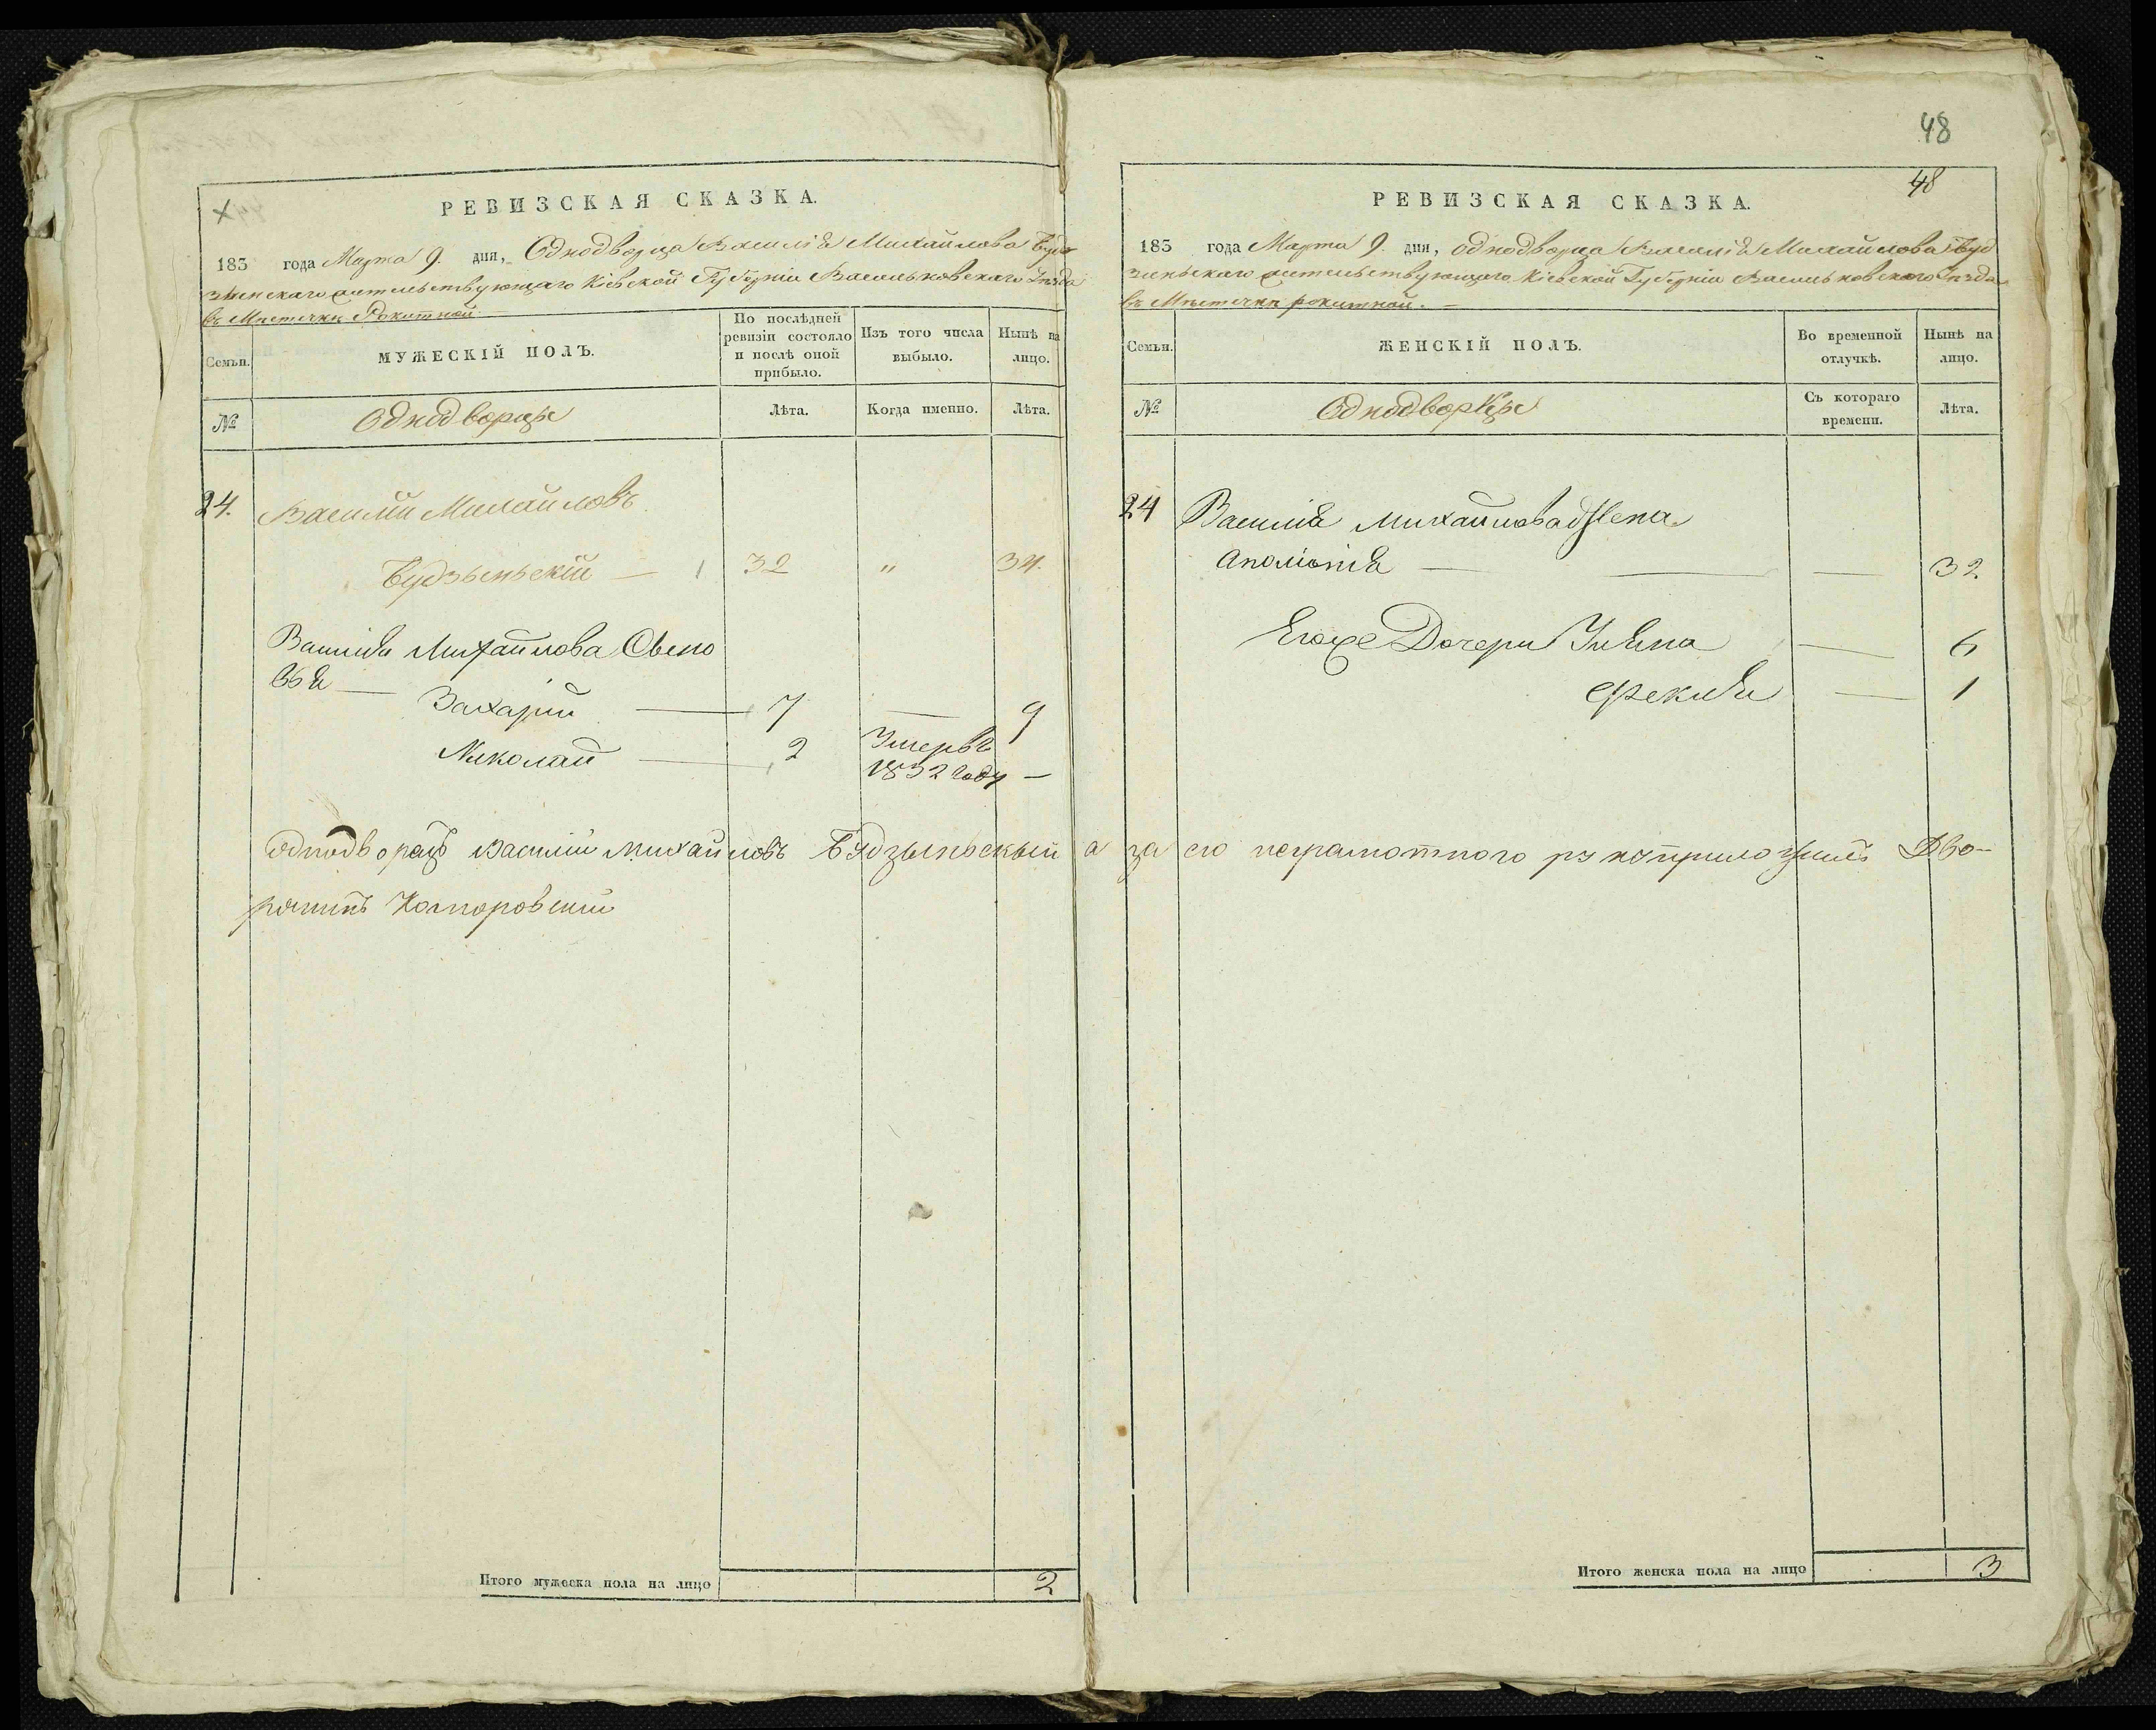 РЕВИЗСКАЯ СКАЗКА.
183 года Марта 9. дня, Однодворца Василія Михайлова Буд
зынскаго жительствующаго Кіевской Губерніи Васильковскаго Уѣзда
въ Мѣстечкѣ Рокитной
Семьи.
МУЖЕСКІЙ ПОЛЪ.
По послѣдней ревизіи состояло и послѣ оной прибыло.
Изъ того числа выбыло.
Нынѣ на лицо.
№
Однодворцы
Лѣта.
Когда именно.
Лѣта.
24. Василій Михайловъ
Будзыньскій — 1 32 " 34.
Василія Михайлова Сыно
вья — Захарій — 7 — 9
Николай — 2 Умеръ
1832 году —
Однодворецъ Василій Михайловъ Будзыньскый а за его неграмотного руку приложилъ Дво-
рянинъ Коморовскій
Итого мужеска пола на лицо 2
48
48
РЕВИЗСКАЯ СКАЗКА.
183 года Марта 9. дня, однодворца Василія Михайлова Буд
зиньскаго жительствующаго Кіевской Губерніи Васильковского Уѣзда
въ Мѣстечкѣ рокитной. —
Семьи.
ЖЕНСКІЙ ПОЛЪ.
Во временной отлучкѣ.
Нынѣ на лицо.
№
Однодворцы
Съ котораго времени.
Лѣта.
24 Василія Михайлова Жена
Аполонія — — — 32
Егоже Дочери Уляна — 6
Фекля — 1
Итого женска пола на лицо 3